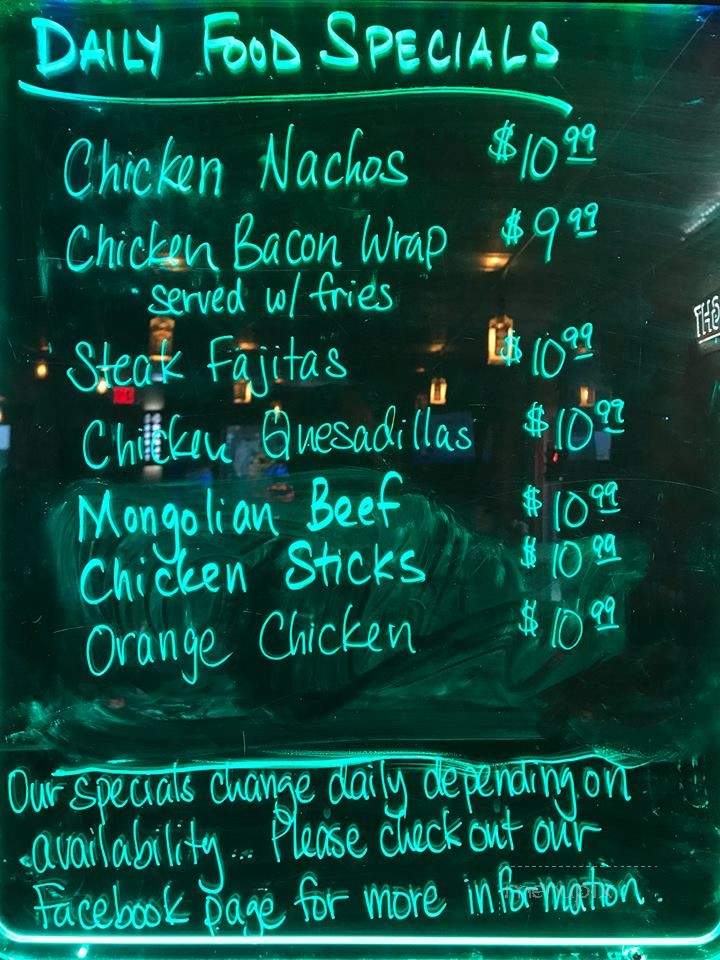 DAILY FOOD SPECIALS
Chicken Nachos $10.99
Chicken Bacon Wrap $9.99
served w/ fries
Steak Fajitas $10.99
Chicken Quesadillas $10.99
Mongolian Beef $10.99
Chicken Sticks $10.99
Orange Chicken $10.99
Our specials change daily depending on
availability... Please check out our
Facebook page for more information.